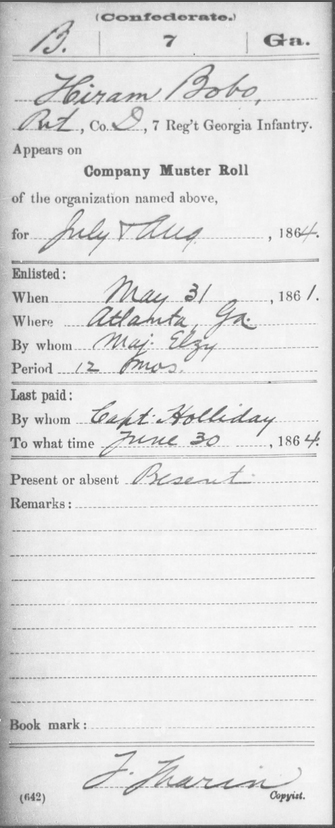 (Confederate.)
B. 7 Ga.
Hiram Bobo,
Pvt, Co. D, 7 Reg't Georgia Infantry.
Appears on
Company Muster Roll
of the organization named above,
for July & Aug, 1864.
Enlisted:
When May 31, 1861.
Where Atlanta, Ga.
By whom Maj. Elzy
Period 12 mos.
Last paid:
By whom Capt. Holliday
To what time June 30, 1864.
Present or absent Present
Remarks:
Book mark:
(642) Copyist.